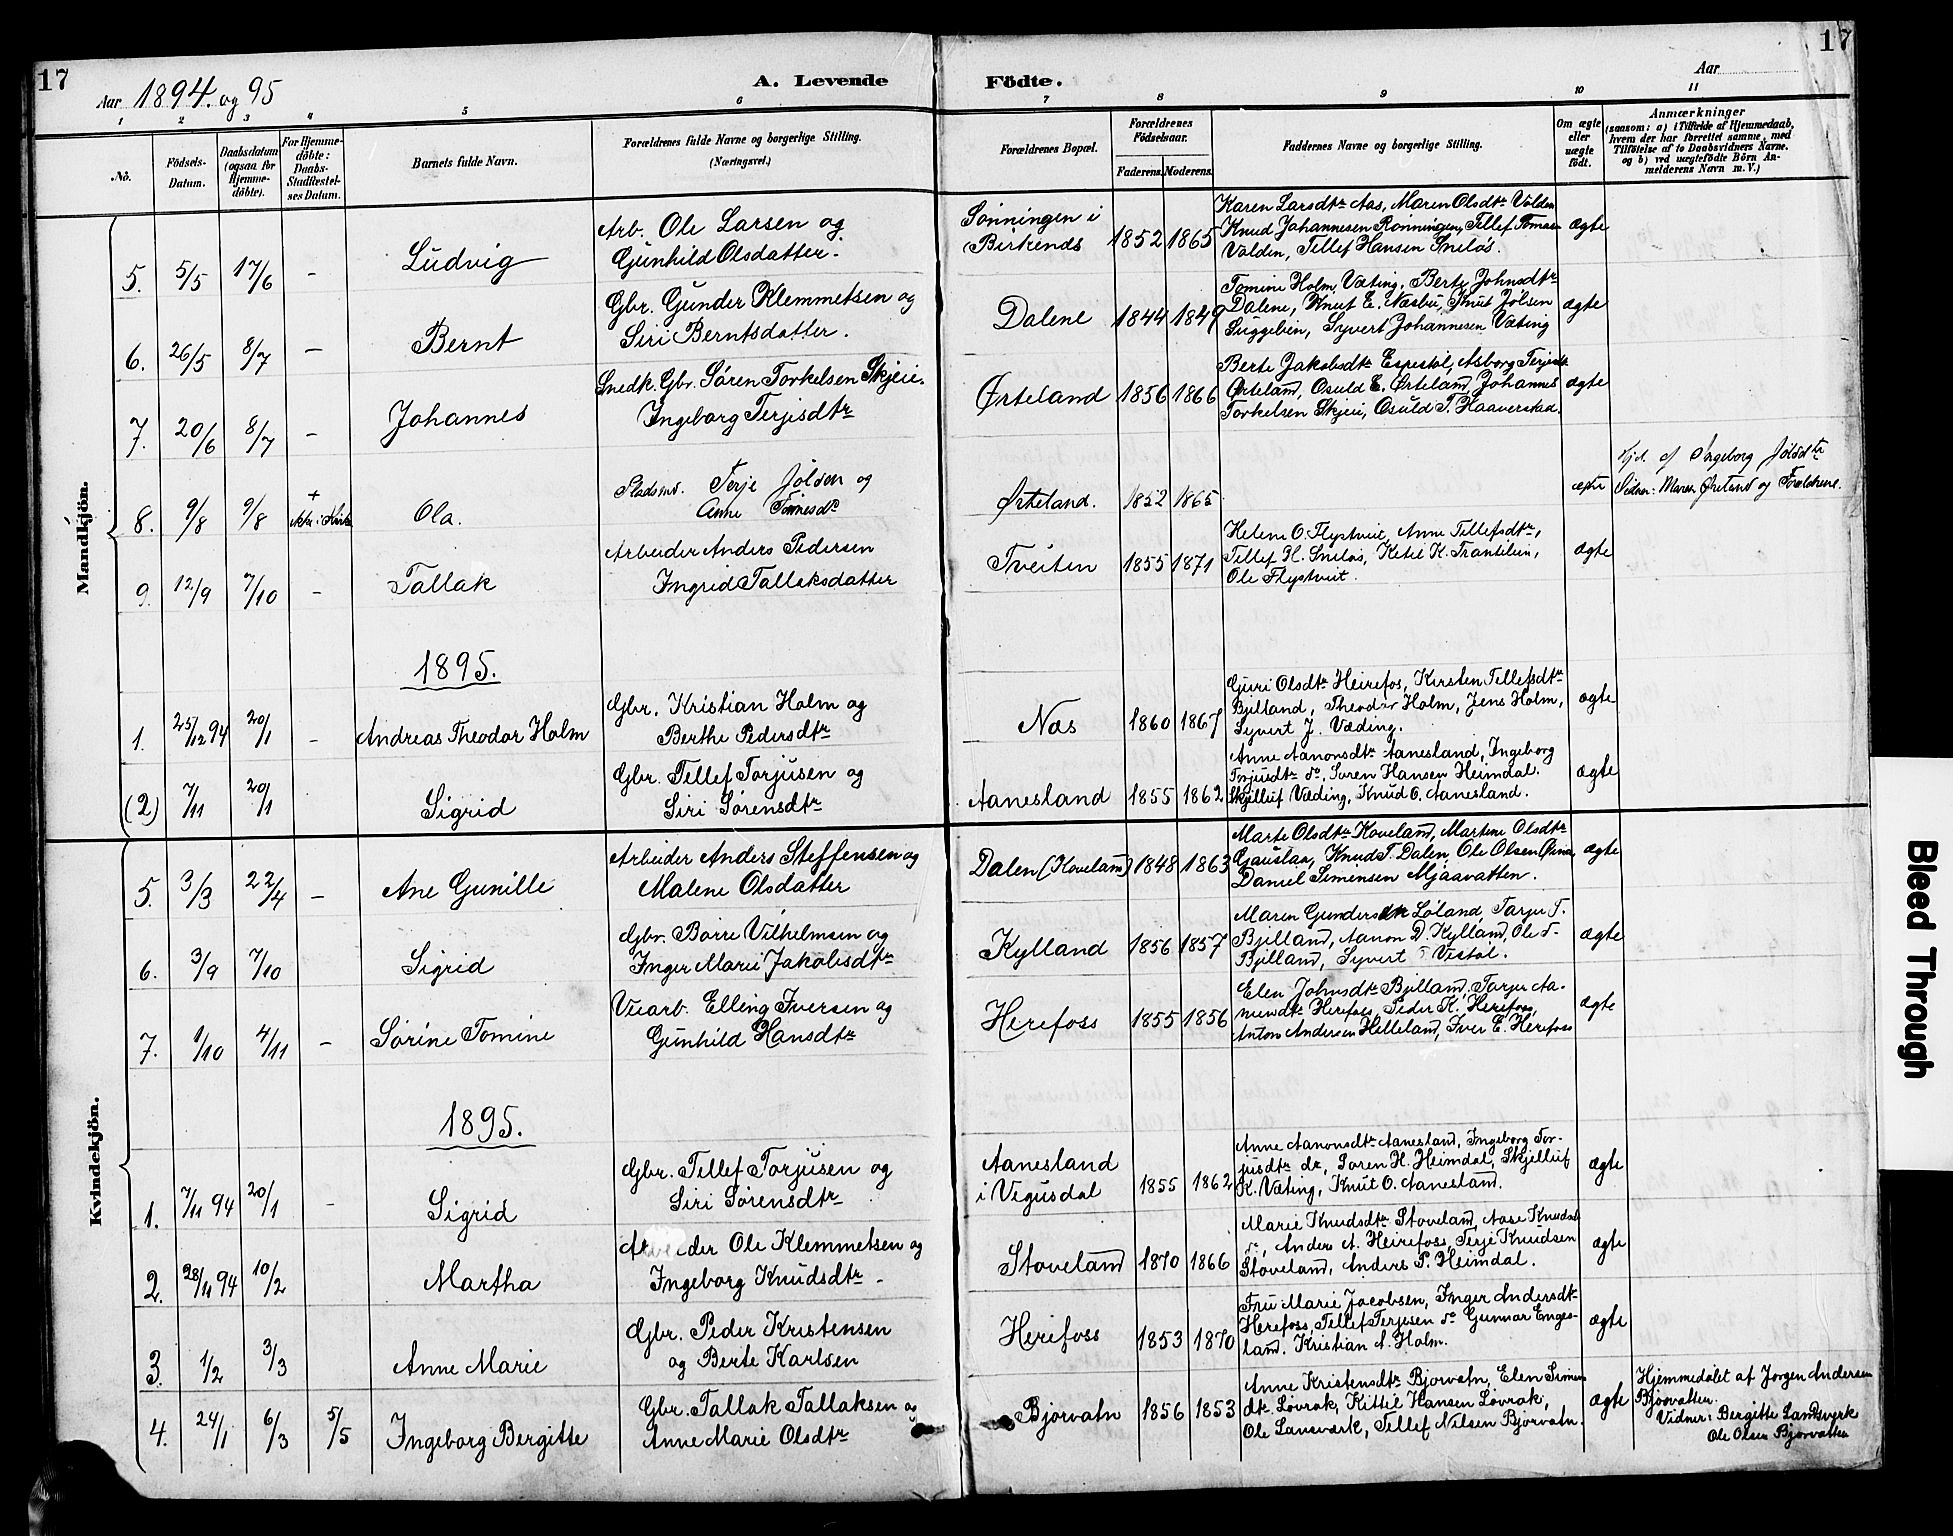 17
17
Aar 1894. og 95
A. Levende
Födte.
Aar
1 2 3 4 5 6 7 8 9 10 11
Nô.
Födsels-Datum.
Daabsdatum (ogsaa for Hjemme-döbte).
For Hjemme-döbte: Daabs-Stadfæstel-ses Datum.
Barnets fulde Navn.
Forældrenes fulde Navne og borgerlige Stilling. (Næringsvei.)
Forældrenes Bopæl.
Forældrenes Födselsaar.
Faderens. Moderens.
Faddernes Navne og borgerlige Stilling.
Om ægte eller uægte födt.
Anmærkninger
(saasom: a) i Tilfælde af Hjemmedaab, hvem der har forrettet samme, med Tilföielse af to Daabsvidners Navne. og b) ved uægtefödte Börn An-melderens Navn m. V.)
Mandkjön.
5. 5/5 17/6 – Ludvig
Arb. Ole Larsen og
Gunhild Olsdatter.
Birkenes 1852 1865
Karen Larsdtr Aas, Maren Olsdtr Valden
Knud Johannesen Rønningen, Tellef Tomas
Valden, Tellef Hansen Sneløs.
ægte
6. 26/5 8/7 – Bernt
Gbr. Gunder Klemmetsen og
Siri Berntsdatter.
Dalene 1844 1849
Tomine Holm, Væting, Berte Johnsdtr
Dalene, Knut E. Næsbu, Knut Jølsen
Suggebein, Syvert Johannesen Væting
ægte
7. 20/6 8/7 – Johannes
Snedk. Gbr. Søren Torkelsen Skjeie.
Ingeborg Terjisdtr
Ørteland 1856 1866
Berte Jakobsdtr Espestøl, Asborg Terjesdt
Ørteland, Osuld E. Ørteland, Johannes
Torkelsen Skjeie, Osuld T. Haaverstad.
ægte
8. 9/8 9/8 + ikke i Kirke Ola.
Pladsmd. Terje Jølsen og
Anne
Ørteland. 1852 1865
ægte
Hjd. af Ingeborg Jølsdtr
Vidner: Maren Ørteland og Forældrene.
9. 12/9 7/10 – Tallak
Arbeider Anders Pedersen
Ingrid Tallaksdatter
Tveiten 1855 1871
Helene O. Flystveit, Anne Tellefsdtr,
Tellef H. Sneløs, Ketil K. Trantilein,
Ole Flystveit.
ægte
1895.
1. 25/12 94 20/1 – Andreas Theodor Holm
Gbr. Kristian Holm og
Berthe Pedersdtr
Næs 1860 1867
Guri Olsdtr Heirefos, Kirsten Tellefsdtr
Bjelland, Theodor Holm, Jens Holm,
Syvert J. Væding.
ægte
(2) 7/11 20/1 Sigrid
Gbr. Tellef Torjusen og
Siri Sørensdtr
Aanesland 1855 1862
Anne Aanonsdtr Aanesland, Ingeborg
Torjusdtr do, Søren Hansen Heimdal.
Skjelluf Væding, Knud O. Aanesland.
ægte
Kvindekjön.
5. 3/3 22/4 – Ane Gunille
Arbeider Anders Steffensen og
Malene Olsdatter
Dalen (Koveland) 1848 1863
Marte Olsdtr Koveland, Martine Olsdtr
Gauslaa, Knud T. Dalen, Ole Olsen
Daniel Simensen Mjaavatten.
ægte
6. 3/9 7/10 Sigrid
Gbr. Børre Vilhelmsen og
Inger Marie Jakobsdtr
Kylland 1856 1857
Maren Gundersdtr Løland, Tarjer T.
Bjelland, Aanon D. Kylland, Ole T.
Bjelland, Syvert T Vestøl.
ægte
7. 1/10 4/11 – Sørine Tomine
Veiarb. Elling Iversen og
Gunhild Hansdtr
Herefoss 1855 1856
Elen Johnsdtr Bjelland, Tarjer Aa-
mundtr Herefoss, Peder K. Herefoss,
Anton Andersen Helleland, Iver E. Herefoss
ægte
1895.
1. 7/11 94 20/1 – Sigrid
Gbr. Tellef Torjusen og
Siri Sørensdtr
Aanesland
i Vegusdal 1855 1862
Anne Aanonsdtr Aanesland, Ingeborg Tor-
jusdtr do, Søren H. Heimdal, Skjelluf
K. Væting, Knut O. Aanesland.
ægte
2. 28/11 94 10/2 Martha
Arbeider Ole Klemmetsen og
Ingeborg Knudsdtr –
Støveland 1870 1866
Marie Knudsdtr Støveland, Aase Knudsd
do, Anders A. Heirefoss, Terje Knudsen
Støveland, Anders P. Heimdal.
ægte
3. 1/2 3/3 Anne Marie
Gbr. Peder Kristensen
og Berte Karlsen
Herefoss 1853 1870
Fru Marie Jacobsen, Inger Andersdtr
Herefoss, Tellef Terjesen do Gunnar Enges-
land. Kristian A. Holm.
ægte
4. 24/1 6/3 5/5 Ingeborg Bergitte
Gbr. Tallak Tallaksen og
Anne Marie Olsdtr
Bjorvatn 1856 1853
Anne Kristensdtr Bjorvatn, Elen Simens
dtr. Lovrak, Kittil Hansen Lovrak,
Ole Lansverk, Tellef Nilsen Bjorvatn.
ægte
Hjemmedøbt af Jørgen Andersen
Bjorvatten.
Vidner: Bergitte Landsverk
Ole Olsen Bjorvatten
Bleed Through